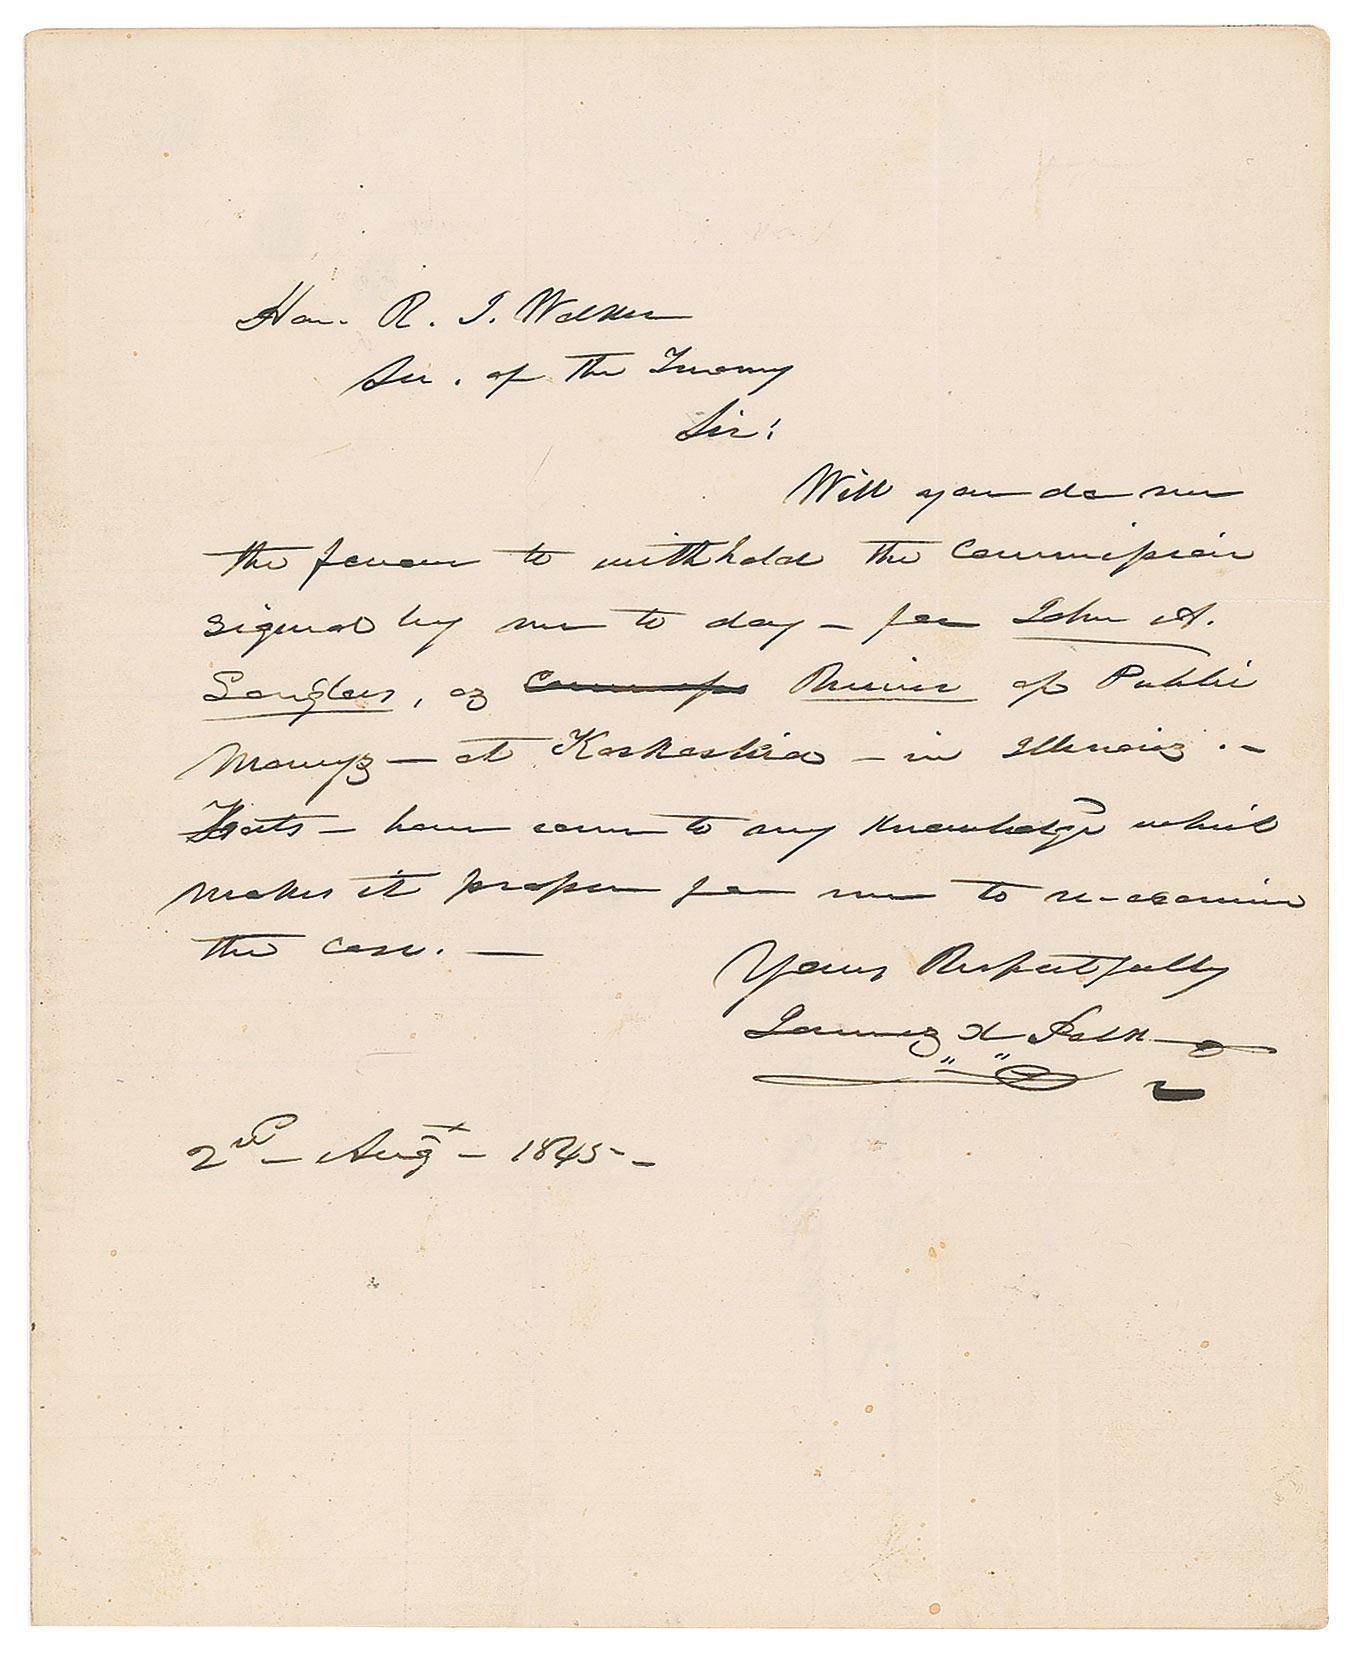 Hon. R. J. Walker
Sec. of the Treasury
Sir:
Will you do me
the favour to withhold the Commission
signed by me to day - for John A.
Langlois, as Receiver of Public
Moneys - at Kaskaskia - in Illinois. -
Facts - have come to my knowledge which
makes it proper for me to re-examine
the case. -
Yours Respectfully
James K Polk
2nd - Augt - 1845 -